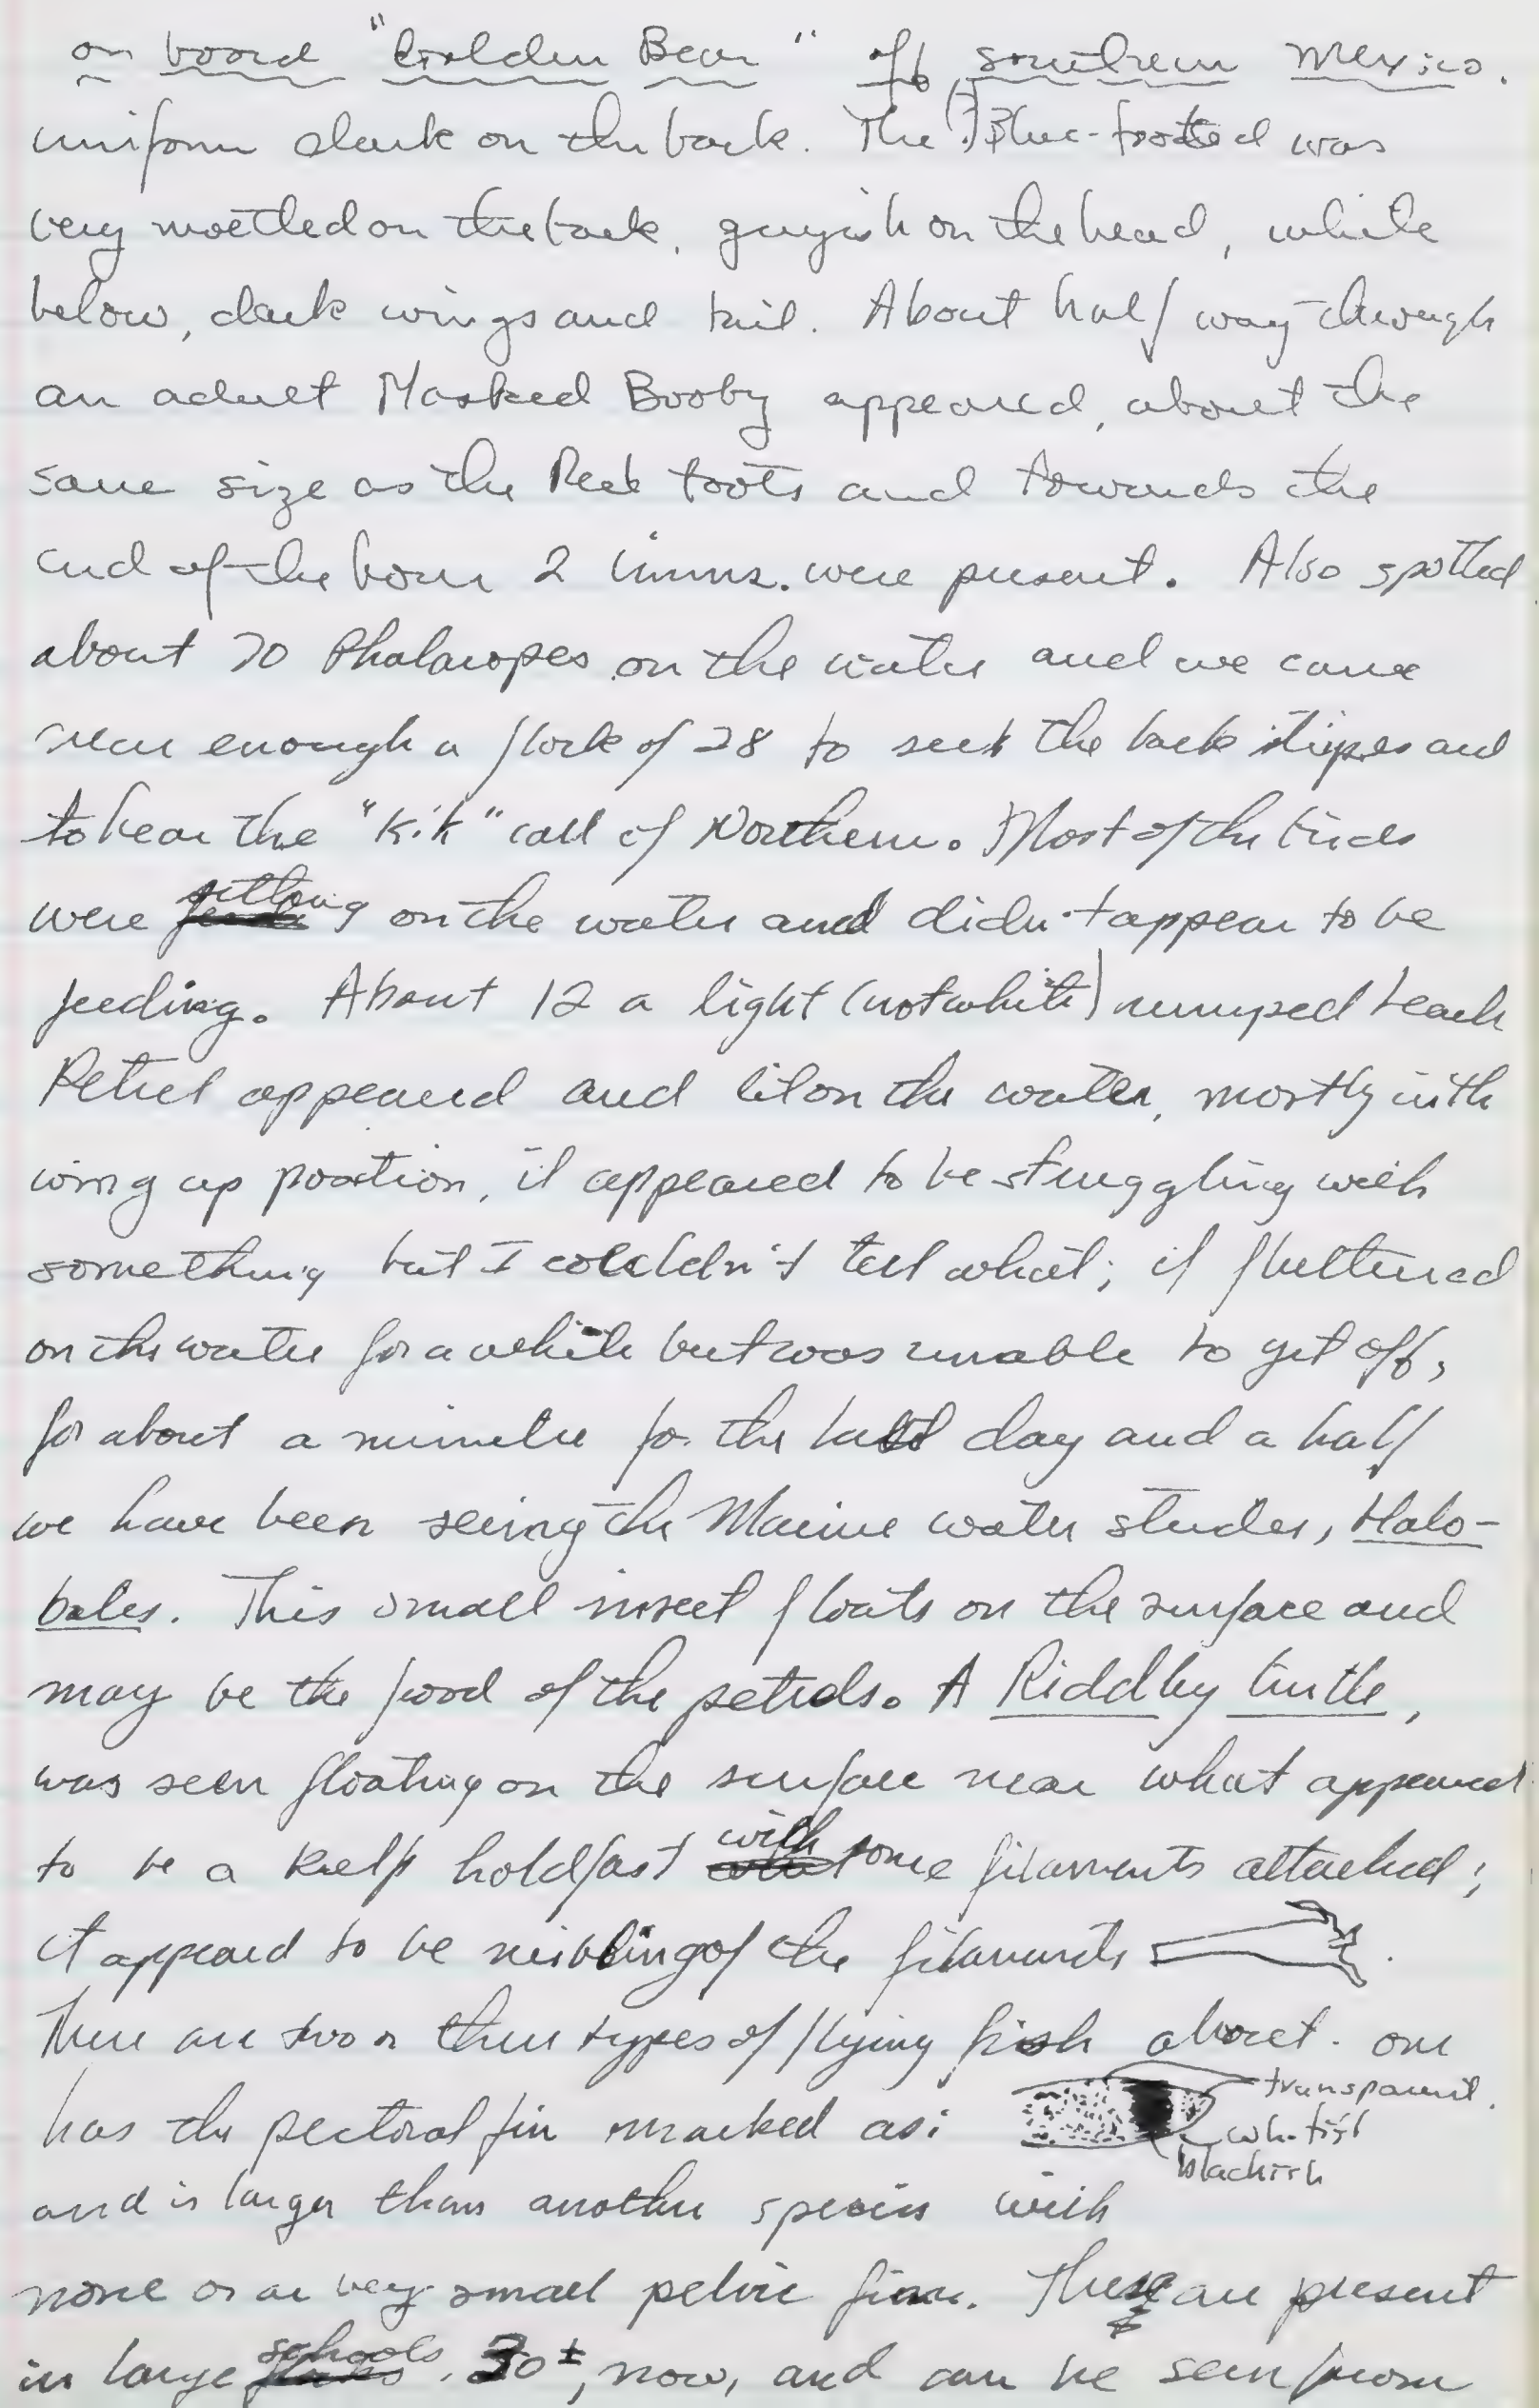 on board "Golden Bear" off southern Mexico.
uniform dark on the back. The (?) Blue-footed was
very mottled on the back, greyish on the head, white
below, dark wings and tail. About half way through
an adult Masked Booby appeared, about the
same size as the Red foots and towards the
end of the hour 2 imms. were present. Also spotted
about 70 Phalaropes on the water and we came
near enough a flock of 28 to see the back stripes and
to hear the "kik" call of Northern. Most of the birds
were sitting on the water and didn't appear to be
feeding. About 12 a light (not white) rumped Leach
Petrel appeared and lit on the water, mostly with
wing up position, it appeared to be struggling with
something but I couldn't tell what; it fluttered
on the water for a while but was unable to get off,
for about a minute for the last day and a half
we have been seeing the Marine water strider, Halo-
bates. This small insect floats on the surface and
may be the food of the petrels. A Riddley turtle,
was seen floating on the surface near what appeared
to be a kelp holdfast with some filaments attached;
it appeard to be nibbling of the filaments
There are two or three types of flying fish about. one
has the pectoral fin marked as:
transparent.
whitish
blackish
and is larger than another species with
none or a very small pelvic fins. These are present
in large schools, 30±, now, and can be seen from